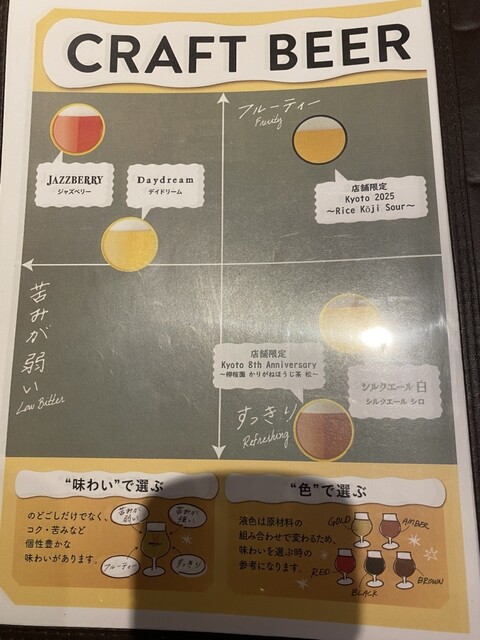 CRAFT BEER
フルーティー
Fruity
JAZZBERRY
ジャズベリー
Daydream
デイドリーム
店舗限定
Kyoto 2025
～Rice Kōji Sour～
苦みが弱い
Low Bitter
店舗限定
Kyoto 8th Anniversary
～柳桜園 かりがねほうじ茶 松～
シルクエール 白
シルクエール シロ
すっきり
Refreshing
“味わい”で選ぶ
のどごしだけでなく、
コク・苦みなど
個性豊かな
味わいがあります。
苦みが
弱い
苦みが
強い
フルーティー
すっきり
“色”で選ぶ
液色は原材料の
組み合わせで変わるため、
味わいを選ぶ時の
参考になります。
GOLD
AMBER
RED
BLACK
BROWN